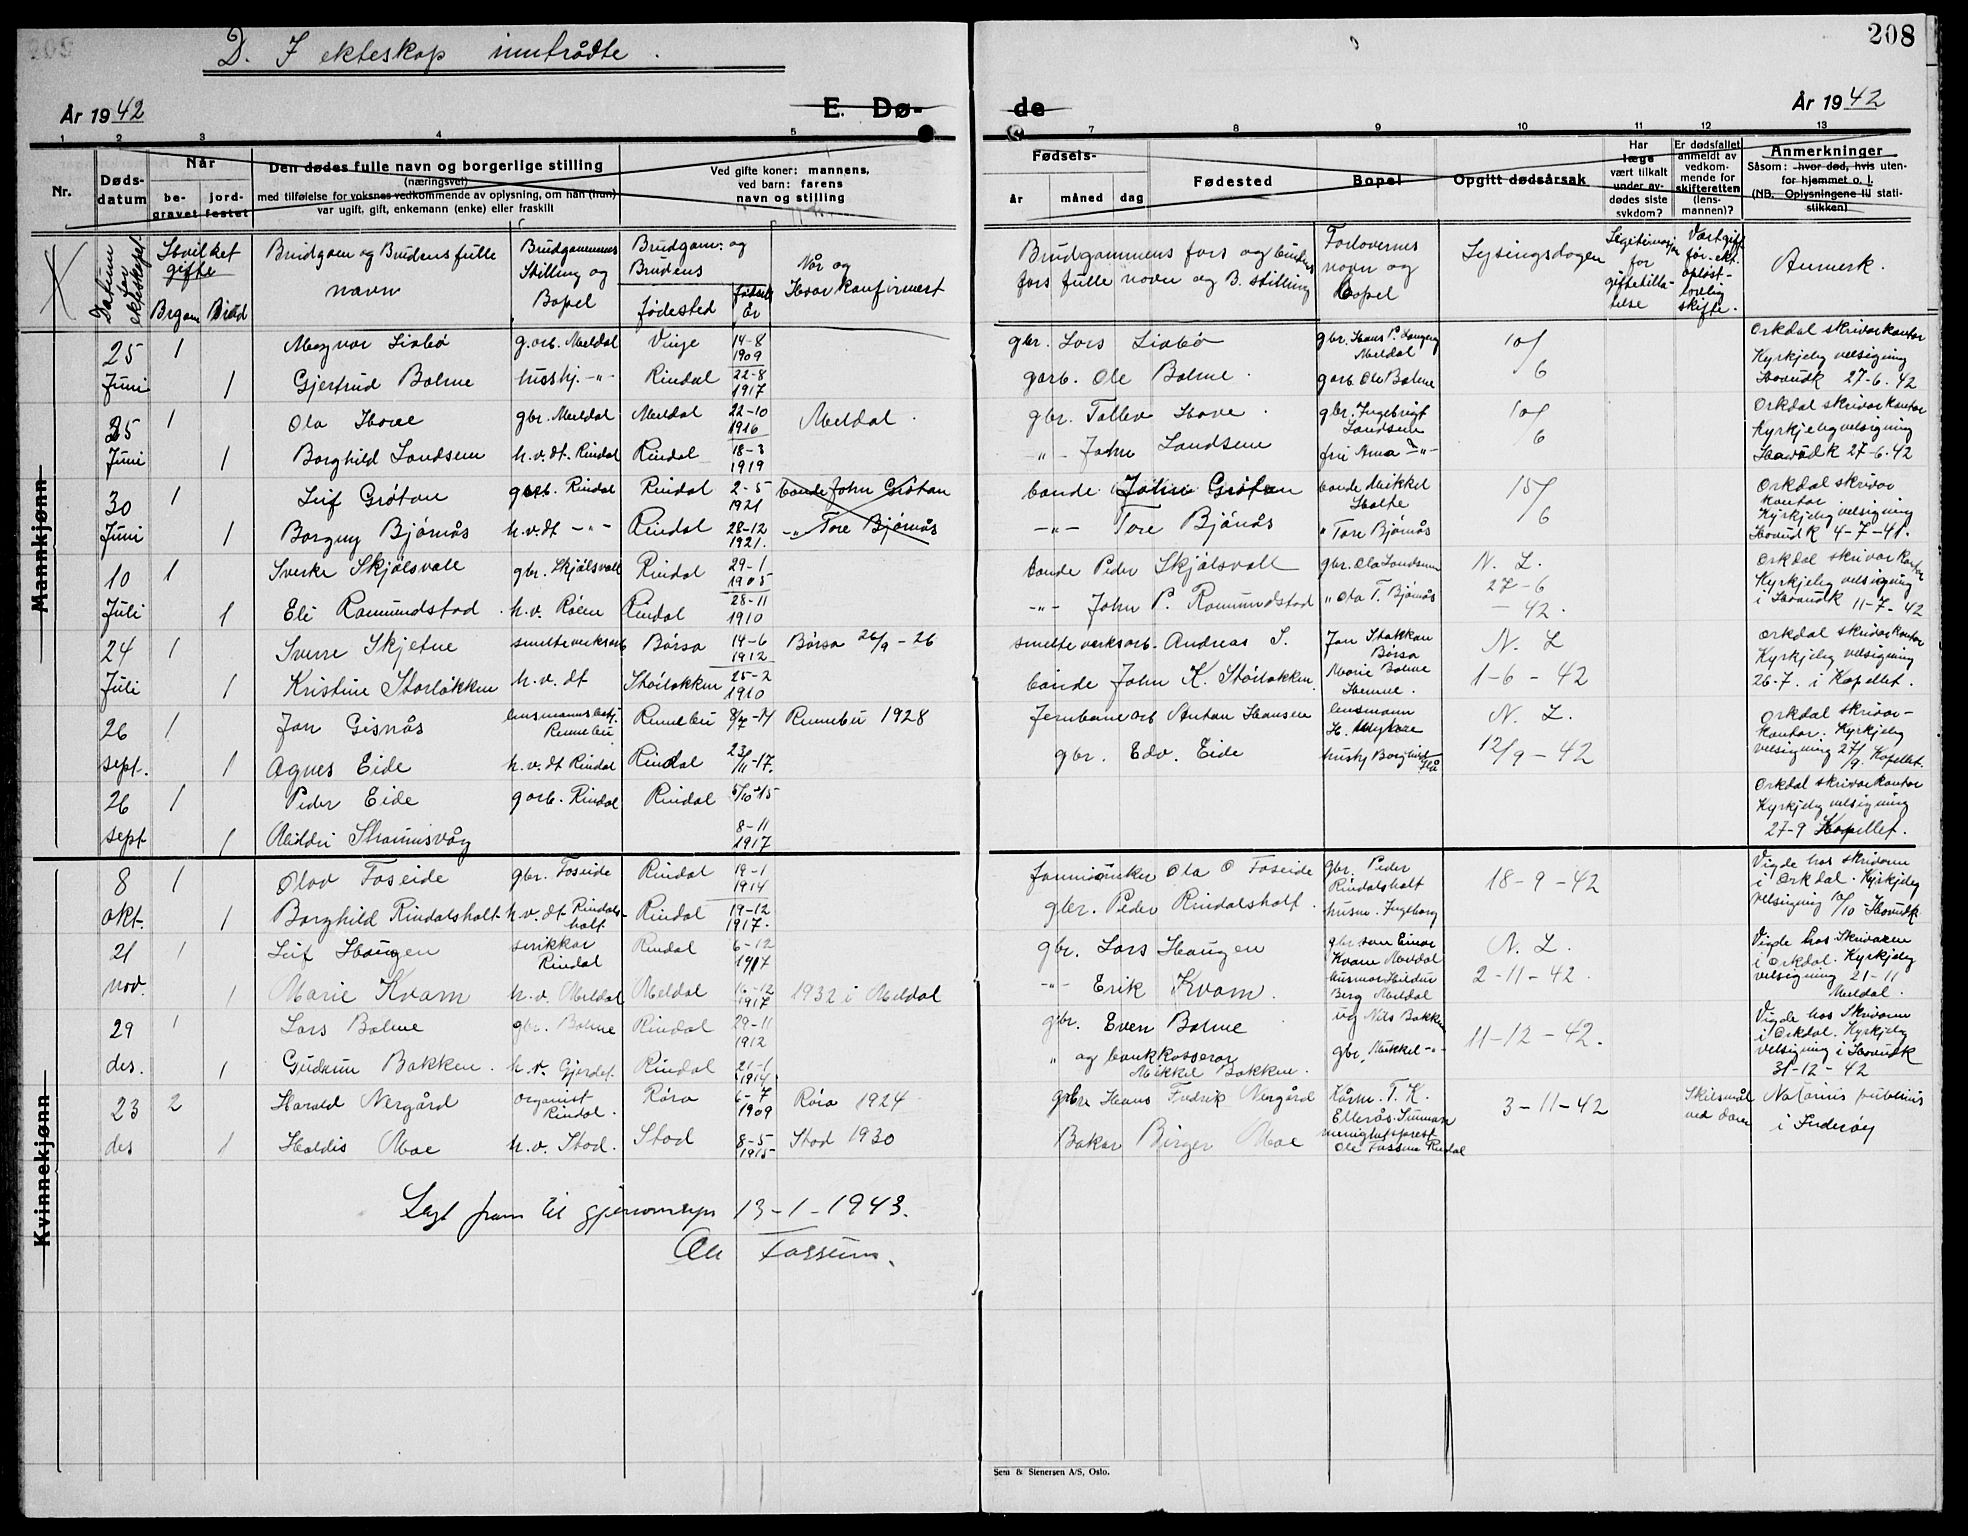 208
D. I ekteskap inntrådte.
År 1942
E. Dø-
de
År 1942
1 2 3 4 5 7 8 9 10 11 12 13
Nr.
Døds-
datum
Når
be-
gravet
jord-
festet
Den dødes fulle navn og borgerlige stilling
(næringsvei)
med tilføielse for voksnes vedkommende av oplysning, om han (hun)
var ugift, gift, enkemann (enke) eller fraskilt
Ved gifte koner: mannens,
ved barn: farens
navn og stilling
Fødsels-
år måned dag
Fødested
Bopel
Opgitt dødsårsak
Har
læge
vært tilkalt
under av-
dødes siste
sykdom?
Er dødsfallet
anmeldt av
vedkom-
mende for
skifteretten
(lens-
mannen)?
Anmerkninger
Såsom: hvor død, hvis uten-
for hjemmet o. l.
(NB. Oplysningene til stati-
stikken)
Datum for ekteskapet
Hvilket
gifte
Brgom Brud
Brudgom og Brudens fulle
navn
Brudgommens
Stilling og
Bopel
Brudgom: og
Brudens
fødested
fødsels
år
Når og
Hvor konfirmert
Brudgommens fars og brudens
fars fulle navn og B. stilling
Forlovernes
navn og
bopel
Lysingsdagen
Legitimasjon
for
giftetilla-
telse
Anmerk.
Mannkjønn
25 1 Magnar Liabø g.arb. Meldal Vinje 14-8 1909 gbr. Lars Liabø gbr. Hans P. Meldal 10/6 Orkdal skrivarkontor
Juni 1 Gjertrud Bolme hushj. -"- Rindal 22-8 1917 garb. Ole Bolme. garb. Ola Bolme Kyrkjeleg velsigning Hovudk 27-6-42
25 1 Ola Hove gbr. Meldal Meldal 22-10 1916 Meldal. gbr. Tollev Hove. gbr. Ingebrigt Landsem 10/6 Orkdal skrivarkontor
Juni 1 Borghild Landsem h.v.dt. Rindal Rindal 18-3 1919 -"- John Landsem fru Anna -"- Kyrkjeleg velsigning Hovudk 27-6-42
30 1 Leif Grøtan garb. Rindal Rindal 2-5 1921 bonde John Grøtan bonde John Grøtan bonde Mikkel Holte 15/6 Orkdal skrivar kontor
Juni 1 Borgny Bjørnås h.v.dt -"- Rindal 28-12 1921. -"- Tore Bjørnås -"- Tore Bjørnås " Tore Bjørnås Kyrkjeleg velsigning Hovudk 4-7-41.
10 1 Sverke Skjølsvoll gbr. Skjølsvoll Rindal 29-1 1905 bonde Peder Skjølsvoll gbr. Ola Landsem N. L. 27-6-42. Orkdal skrivarkontor
Juli 1 Eli Romundstad h.v. Røen Rindal 28-11 1910 -"- John P. Romundstad " Ola T. Bjørnås Kyrkjeleg velsigning i Hovudk 11-7-42
24 1 Sverre Skjetne smelteverksarb Børsa 14-6 1912 Børsa 26/9-26 smelteverksarb. Andreas S. Jon Stokkan Børsa N. L 1-6-42 Orkdal skrivarkontor
Juli 1 Kristine Storløkken h.v.dt Storløkken 25-2 1910 bonde John K. Storløkken Marie Bolme Hemne. Kyrkjeleg velsigning 26-7. i Kapellet.
26 1 Jon Gisnås lensmannsbetj. Rennebu Rennebu Rennebu 1928 Jernbanearb Anton Hansen lensmann N. L. 12/9-42 Orkdal skrivar-kontor. Kyrkjeleg
sept. 1 Agnes Eide h.v.dt Rindal Rindal 23/11-17. gbr. Edv. Eide velsigning 27/9 Kapellet.
26 1 Peder Eide garb. Rindal Rindal Orkdal skrivarkontor
sept 1 8-11 1917 Kyrkjeleg velsigning 27-9 Kapellet.
Kvinnekjønn
8 1 Olav Foseide gbr. Foseide Rindal 19-1 1914 Ola O Foseide gbr. Peder Rindalsholt 18-9-42 Vigde hos skrivaren i Orkdal. Kyrkjeleg
okt. 1 Borghild Rindalsholt h.v.dt Rindals-holt. Rindal 19-12 1917. gbr. Peder Rindalsholt. husm. Ingeborg velsigning 10/10 Hovudk
21 1 Leif Haugen Rindal Rindal 6-12 1917 gbr. Lars Haugen gbr son Einar Kvam Meldal N. L. 2-11-42. Vigde hos Skrivaren i Orkdal. Kyrkjeleg
nov. 1 Marie Kvam h.v. Meldal Meldal 16-12 1917 1932 i Meldal -"- Erik Kvam. husmor Hildur Berg Meldal velsigning 21-11 Meldal.
29 1 Lars Bolme gbr. Bolme Rindal 29-11 1912 gbr. Even Bolme ug Nils Bakken 11-12-42. Vigde hos Skrivaren i Orkdal. Kyrkjeleg
des. 1 Gudrun Bakken. h.v. Gjerdet. Rindal 21-1 1914 " og bankkasserar Mikkel Bakken. gbr. Mikkel -"- velsigning i Hovudk 31-12-42
23 2 Harald Nergård organist Rindal. Røra 6-7 1909 Røra 1924 gbr Hans Fredrik Nergård T. K. 3-11-42 Skilsmål ved dom Notarius publicus
des 1 Haldis Moe h.v. Stod. Stod 8-5 1915 Stod 1930 Baker Birger Moe menighetsprest Ole Fossum Rindal i Inderøy
Lagt fram til gjennomsyn 13-1-1943.
Ole Fossum.
Sem & Stenersen A/S, Oslo.